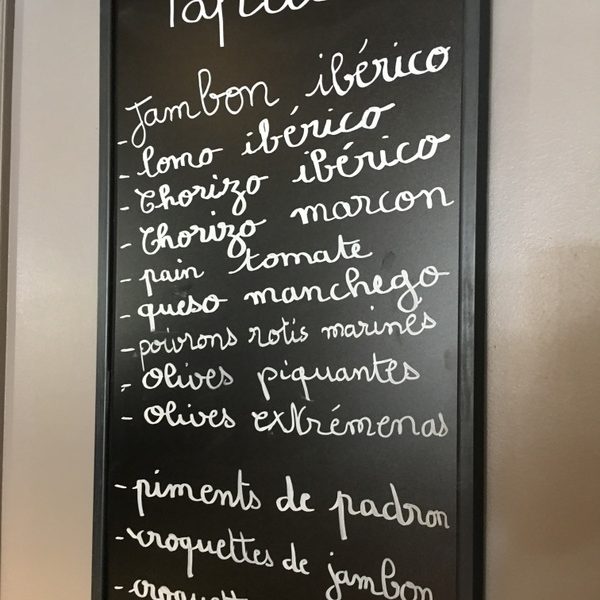 - Jambon ibérico
- lomo ibérico
- Chorizo ibérico
- Chorizo marcon
- pain tomate
- queso manchego
- poivrons rotis marinés
- Olives piquantes
- Olives extrémenas
- piments de padron
- croquettes de jambon